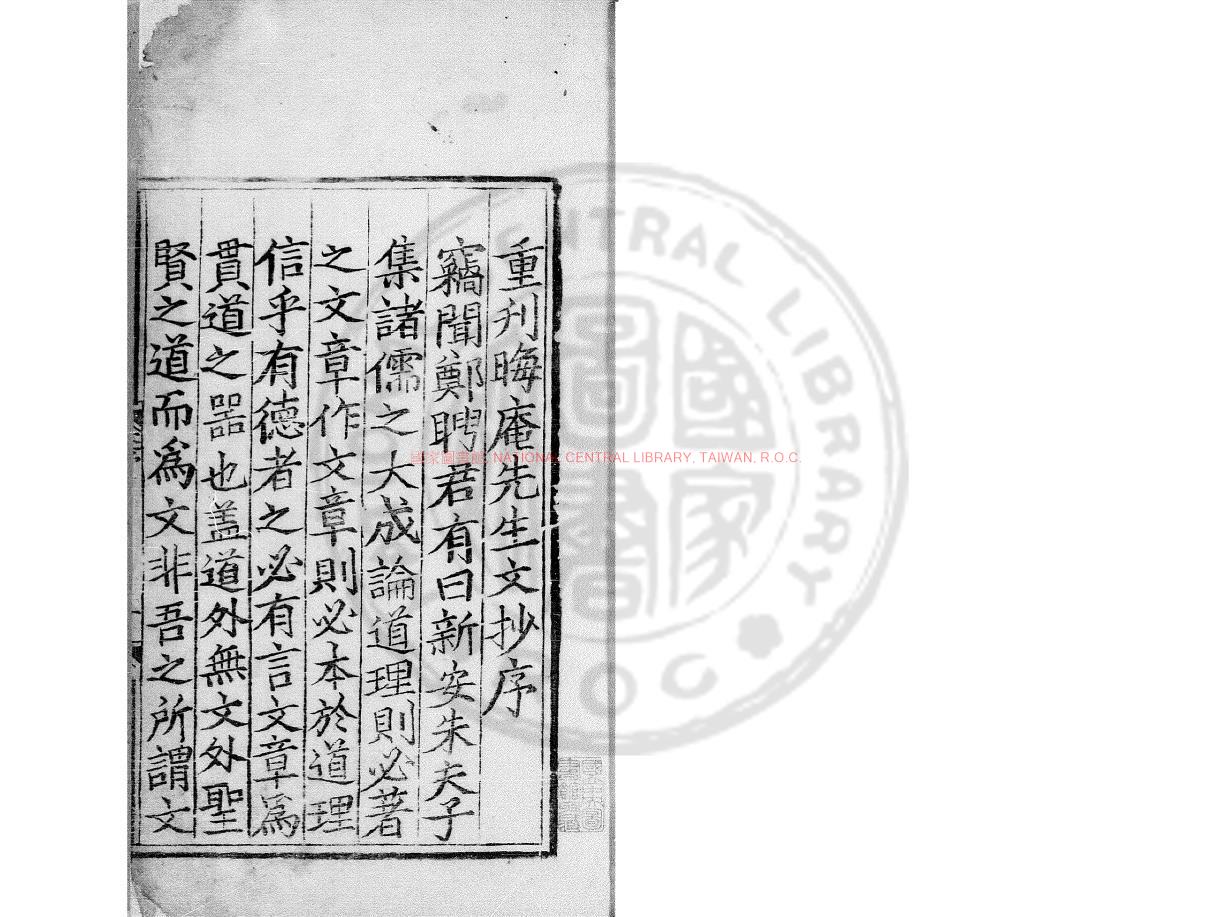 重刋晦庵先生文抄序
竊聞鄭聘君有曰新安朱夫子
集諸儒之大成論道理則必著
之文章作文章則必本於道理
信乎有德者之必有言文章爲
貫道之器也盖道外無文外聖
賢之道而爲文非吾之所謂文
國家圖書館, NATIONAL CENTRAL LIBRARY, TAIWAN, R.O.C.
CENTRAL LIBRARY